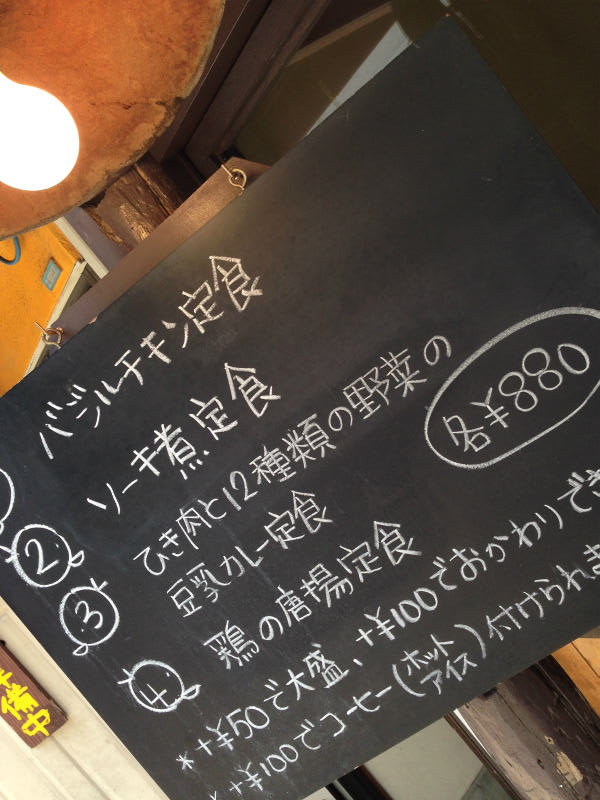 バジルチキン定食
② ソーキ煮定食
③ ひき肉と12種類の野菜の
豆乳カレー定食
各¥880
④ 鶏の唐揚定食
*+¥50で大盛、+¥100でおかわりでき
*+¥100でコーヒー(ホットアイス)付けられま
備中